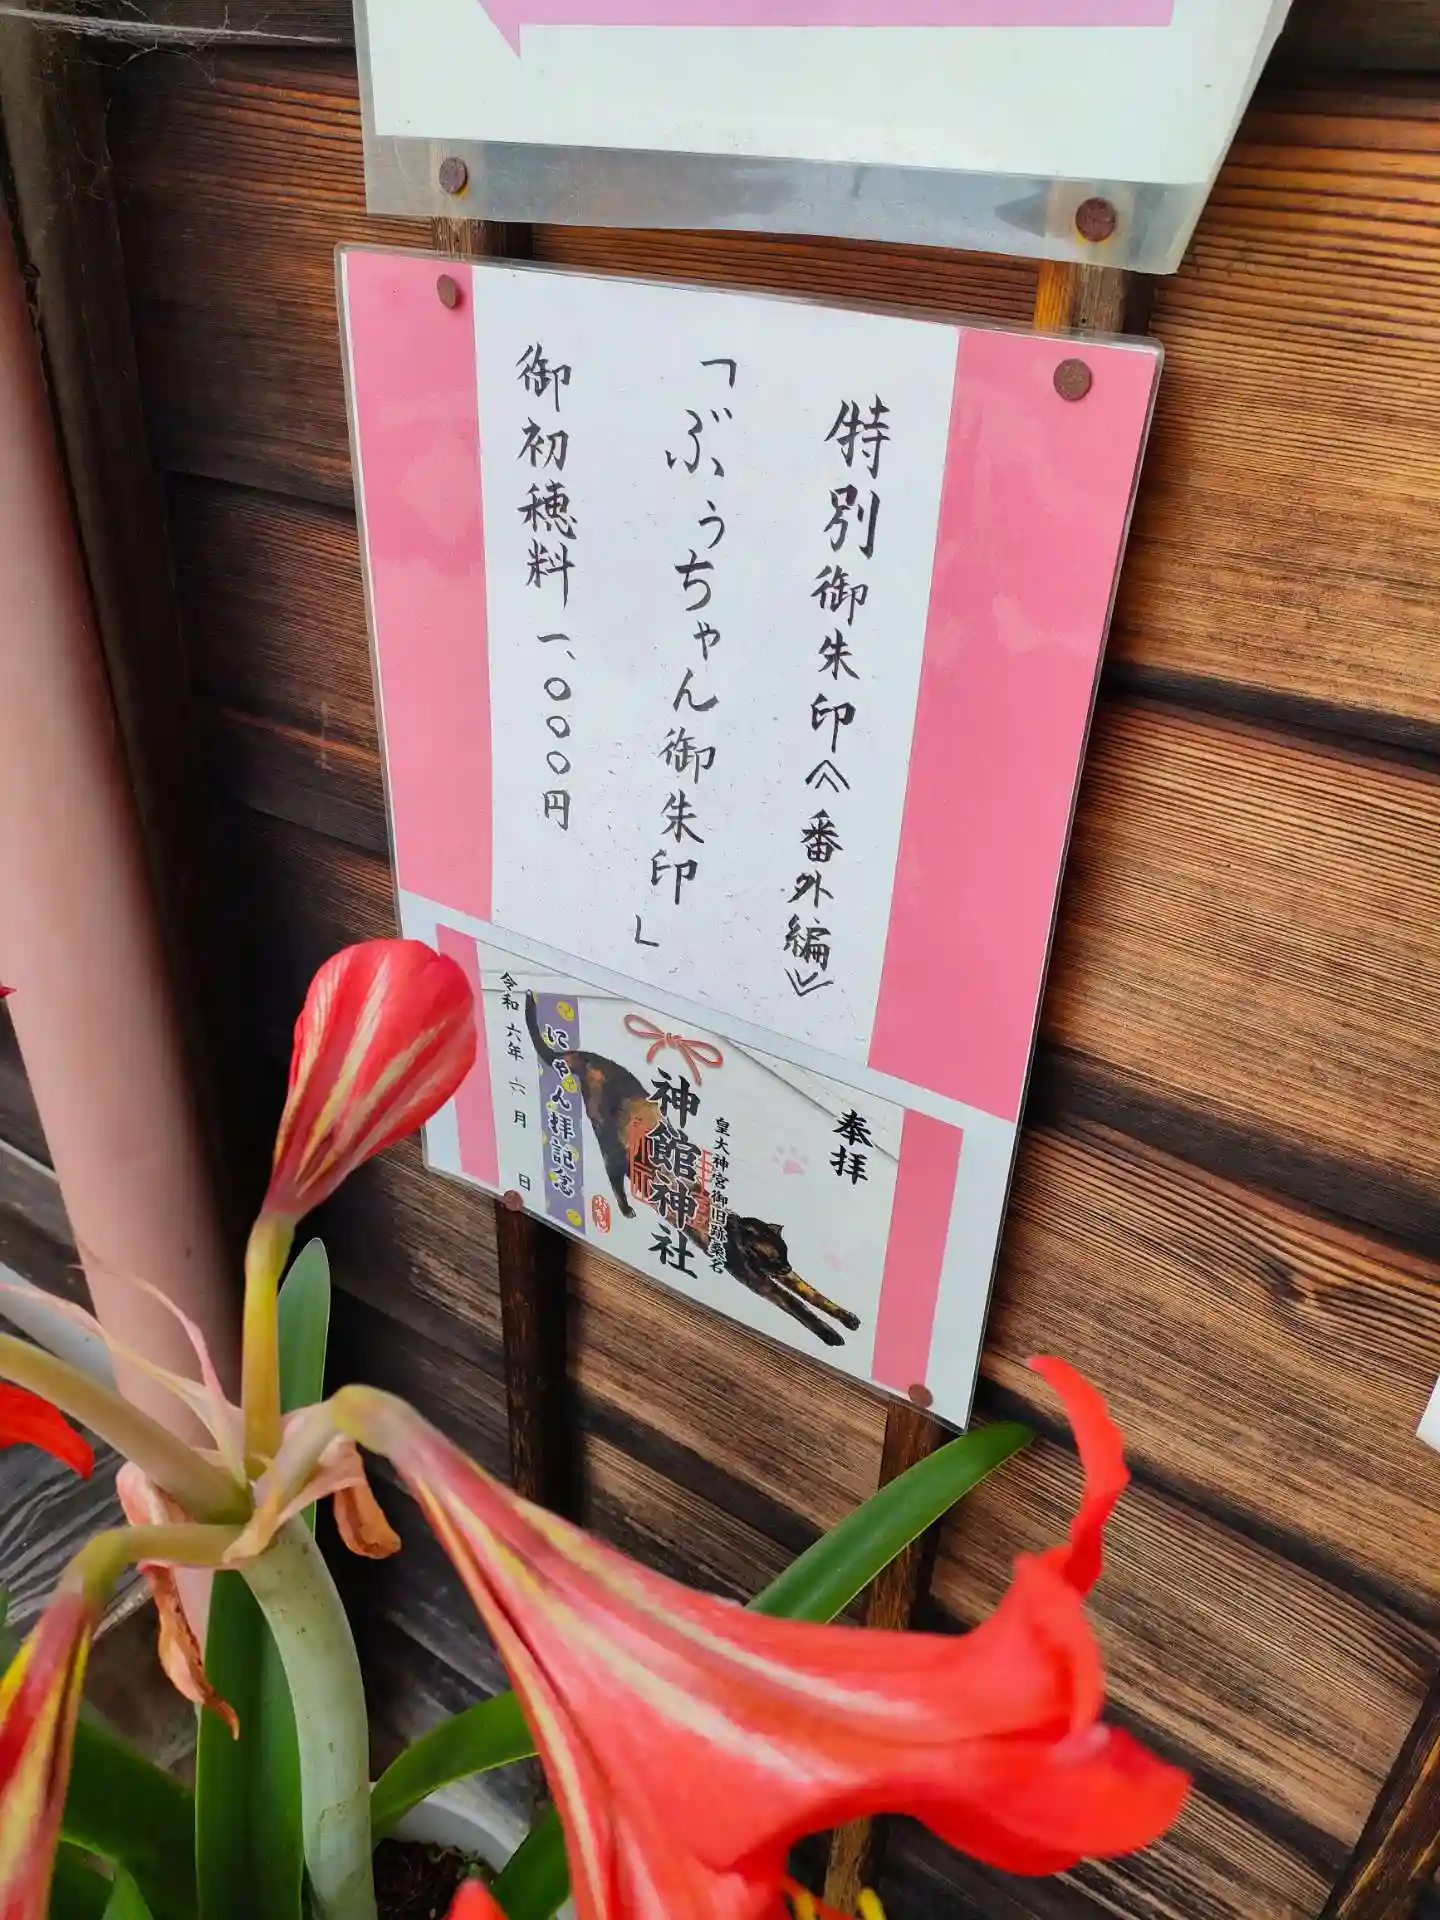 特別御朱印《番外編》
「ぶぅちゃん御朱印」
御初穂料 一、〇〇〇円
奉拝
皇大神宮御旧跡桑名
神館神社
にゃん拝記念
令和 六年 六月 日